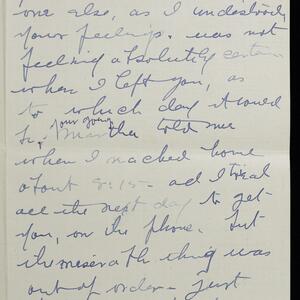 one else, as I understood
your feelings. was not
feeling absolutely certain
when I left you, as
to which day it would
be, your going Martha told me
when I reached home
about 8:15 - ad I tried
all the next day to get
you, on the phone. but
the miserable thing was
out of order - just